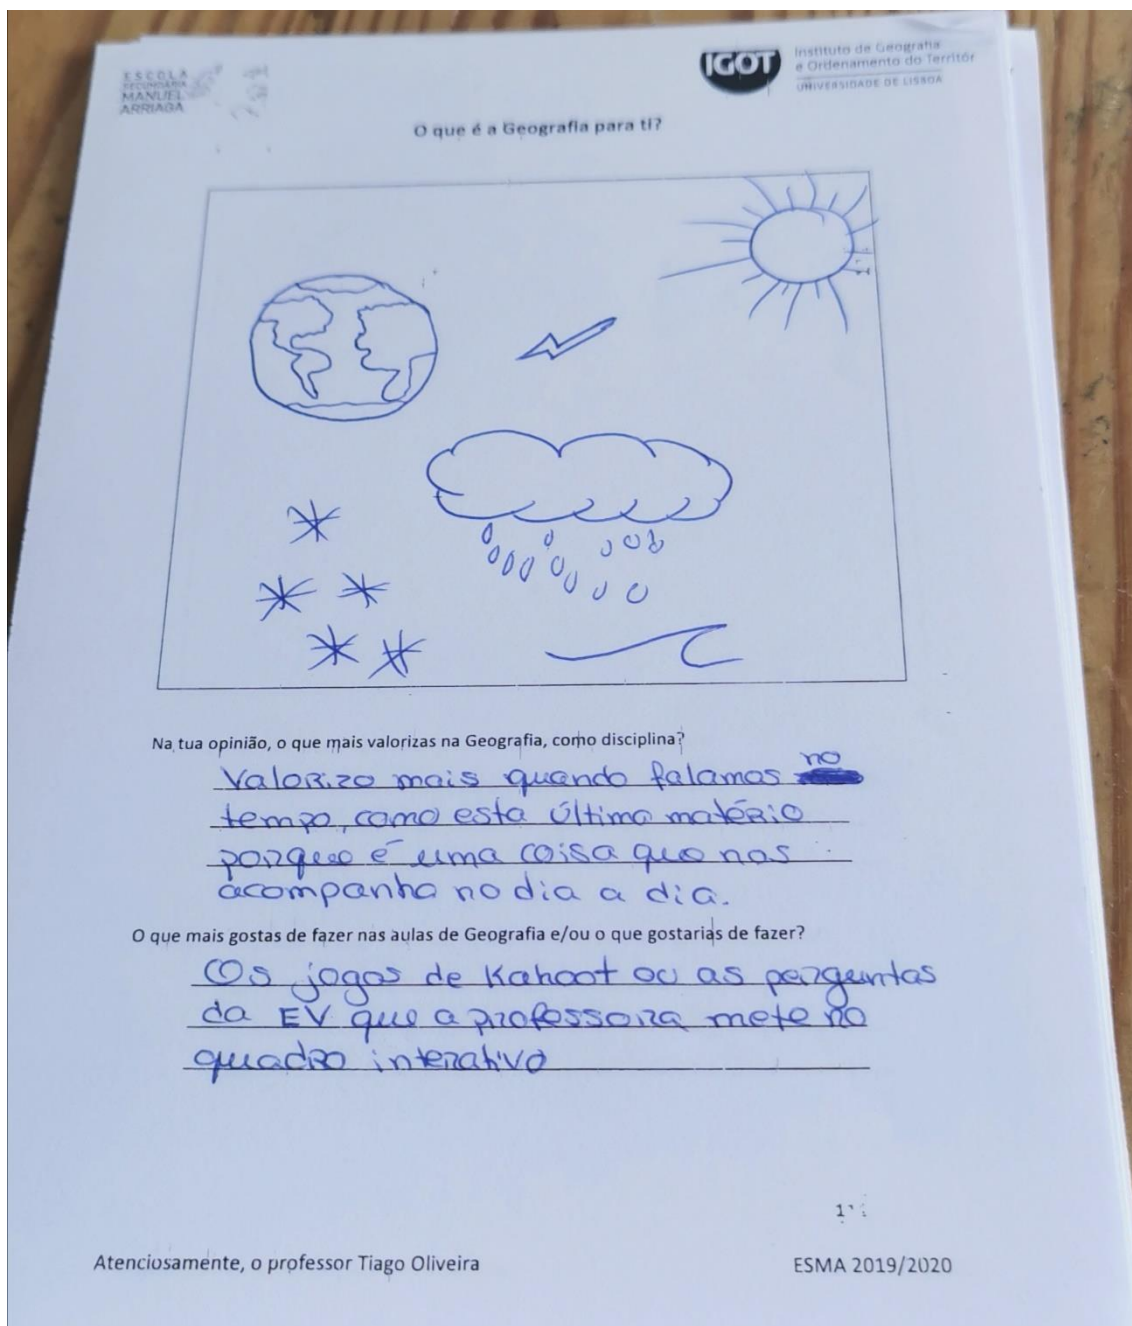 ESCOLA
SECUNDÁRIA
MANUEL
ARRIAGA
IGOT
Instituto de Geografia
e Ordenamento do Territór
UNIVERSIDADE DE LISBOA
O que é a Geografia para ti?
Na tua opinião, o que mais valorizas na Geografia, como disciplina?
Valorizo mais quando falamos no
tempo, como esta última matério
porque é uma coisa que nos
acompanha no dia a dia.
O que mais gostas de fazer nas aulas de Geografia e/ou o que gostarias de fazer?
Os jogos de Kahoot ou as perguntas
da EV que a professora mete no
quadro interativo
1
Atenciosamente, o professor Tiago Oliveira
ESMA 2019/2020